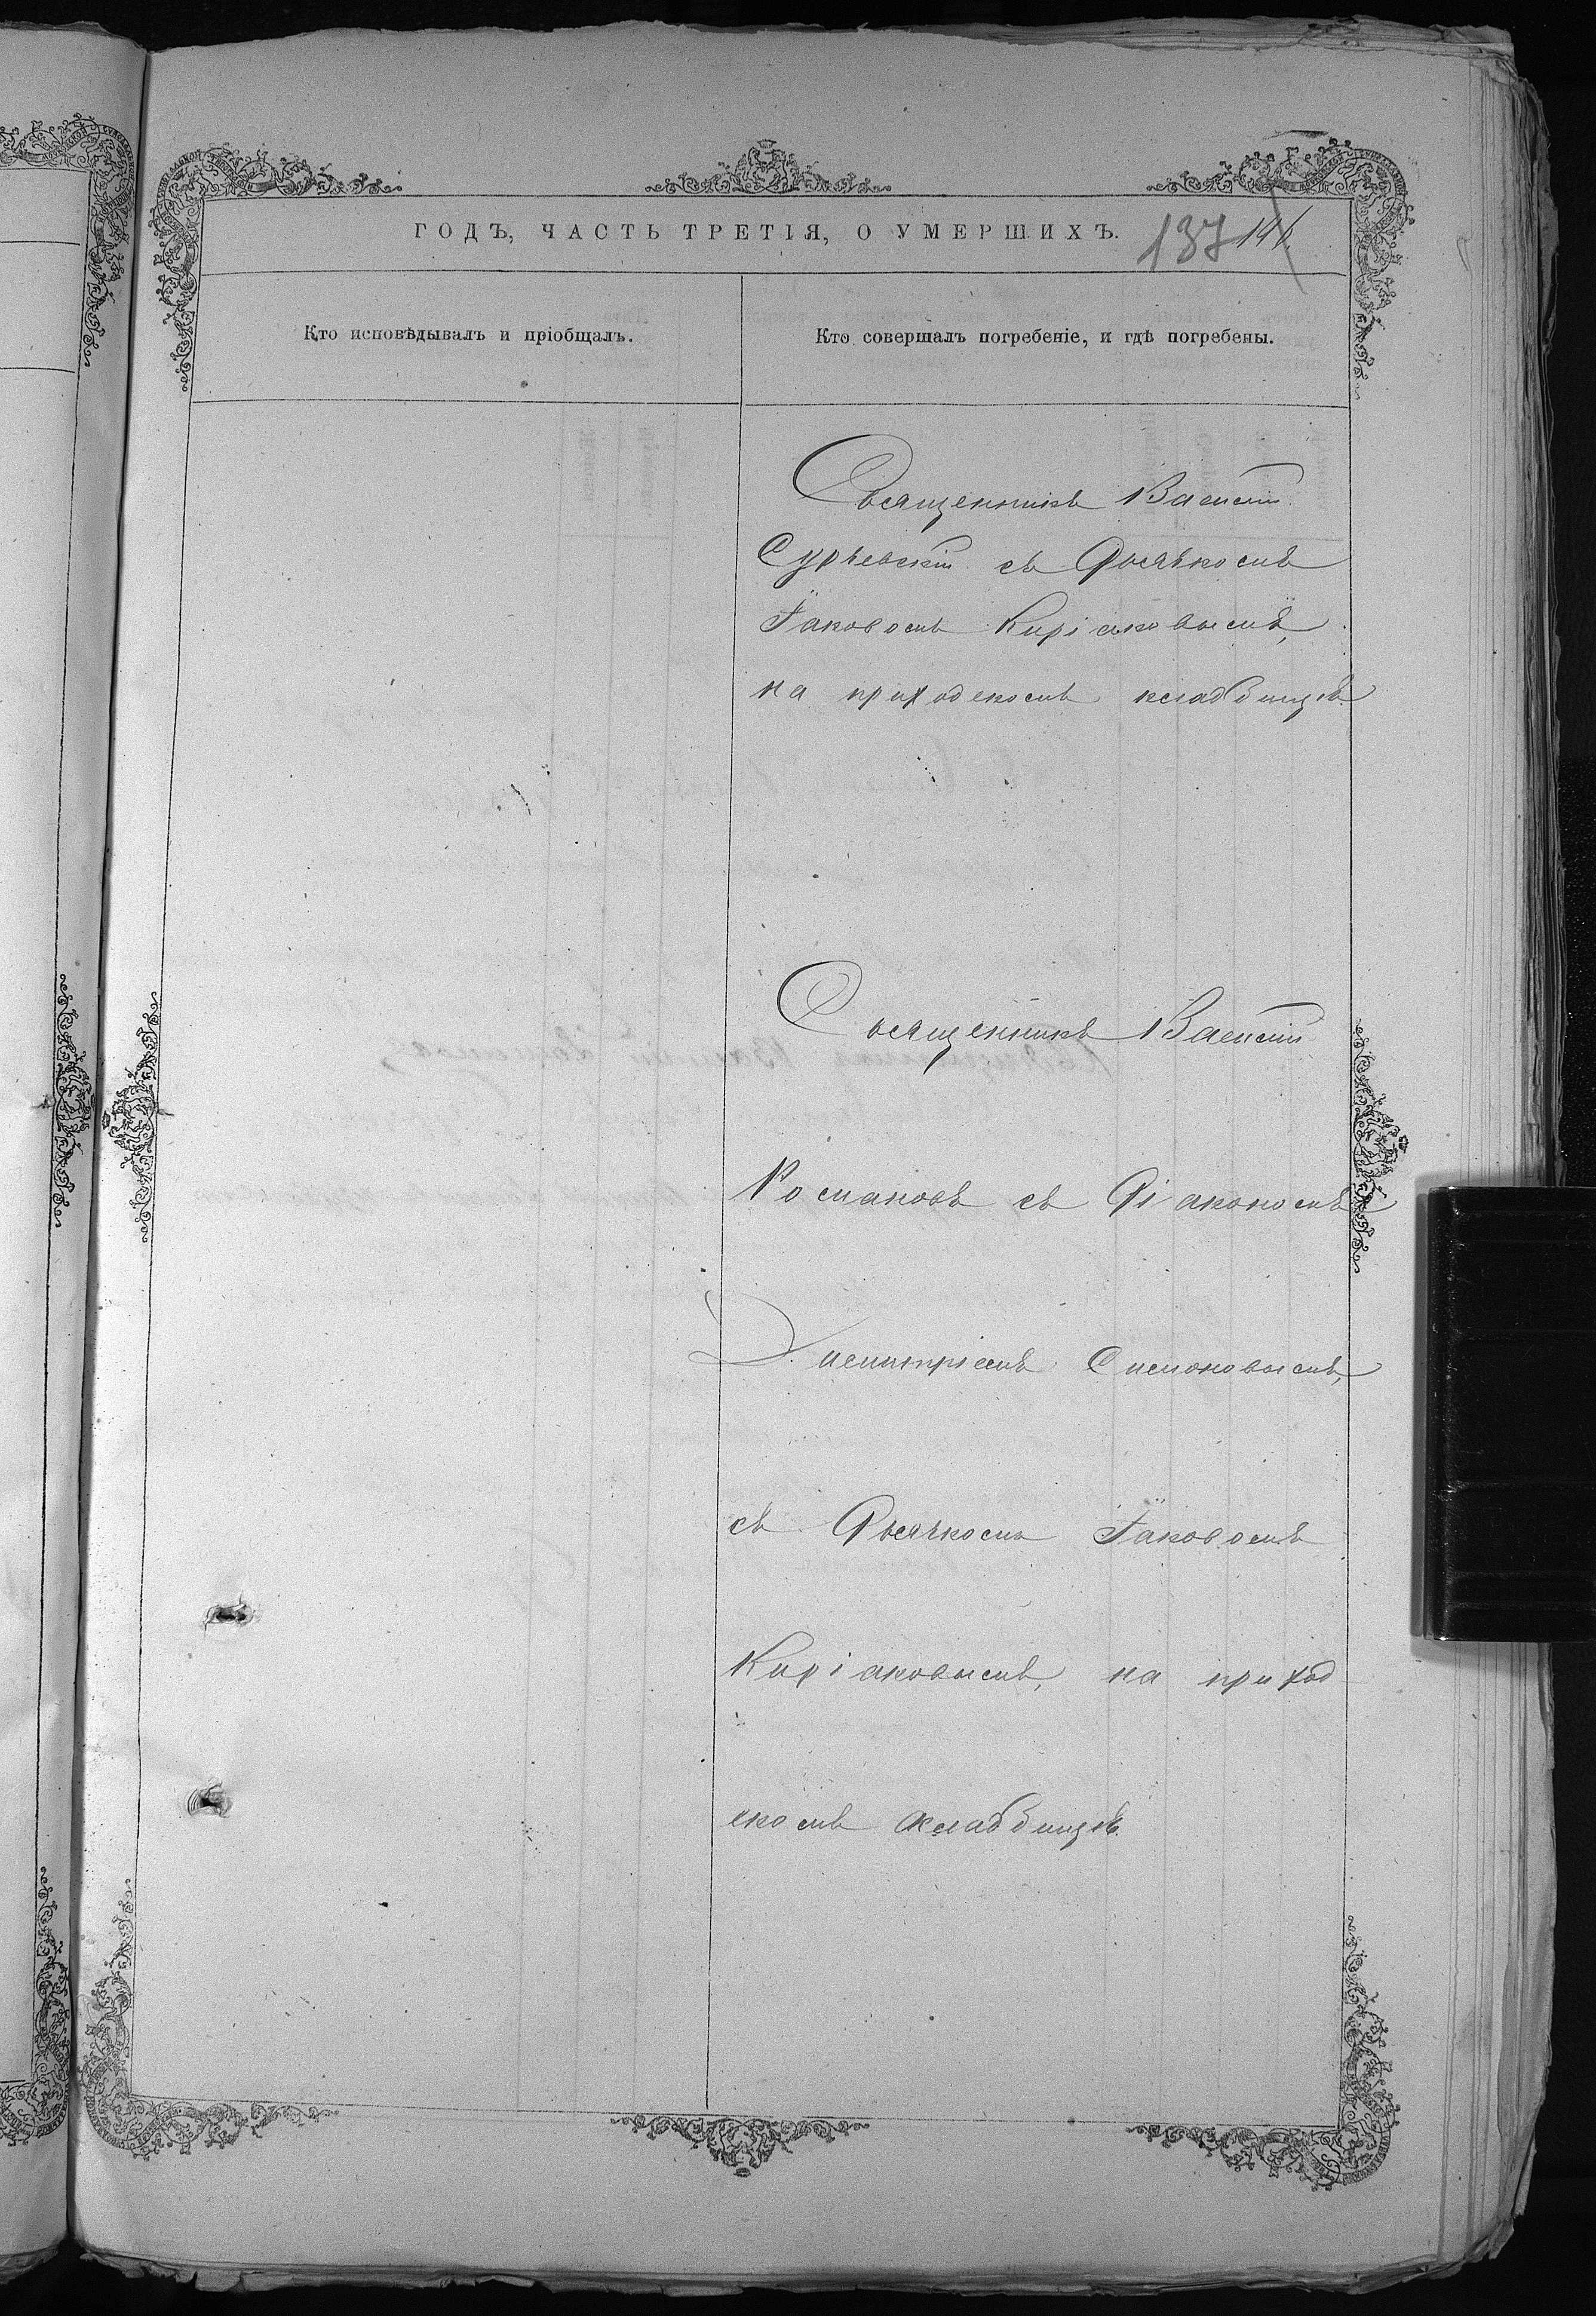 ГОДЪ, ЧАСТЬ ТРЕТІЯ, О УМЕРШИХЪ.
137 146
Кто исповѣдывалъ и пріобщалъ.
Кто совершалъ погребеніе, и гдѣ погребены.
Священникъ Василій
Сурѣвскій съ Псаломъ
Іаковомъ Киріаковымъ,
на приходскомъ кладбищѣ.
Священникъ Василій
Романовъ съ Діакономъ
Димитріемъ Симоновымъ,
съ Дьячкомъ Іаковомъ
Киріаковымъ, на приход
скомъ кладбищѣ.